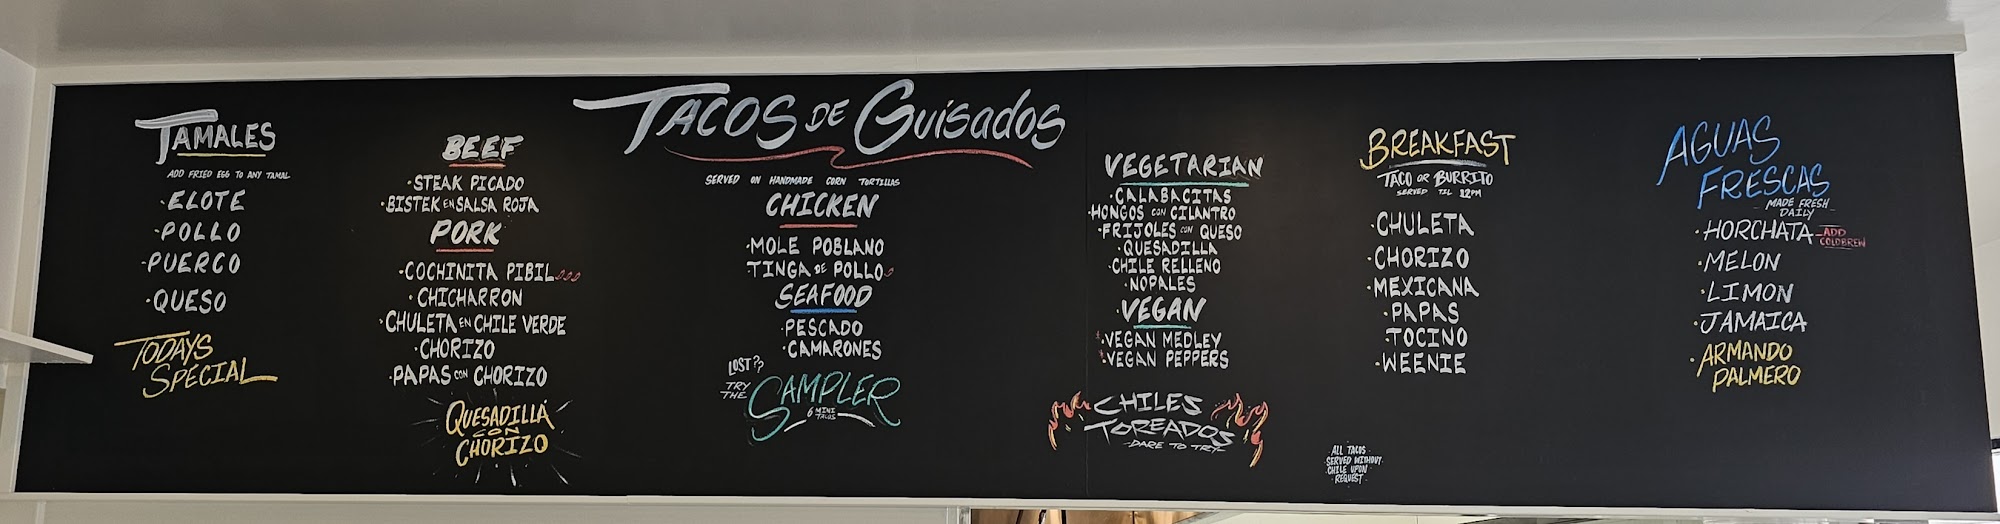 TAMALES
ADD FRIED EGG TO ANY TAMAL
·ELOTE
·POLLO
·PUERCO
·QUESO
TODAYS
SPECIAL
TACOS DE GUISADOS
SERVED ON HANDMADE CORN TORTILLAS
BEEF
·STEAK PICADO
·BISTEK EN SALSA ROJA
PORK
·COCHINITA PIBIL
·CHICHARRON
·CHULETA EN CHILE VERDE
·CHORIZO
·PAPAS CON CHORIZO
QUESADILLA
CON
CHORIZO
CHICKEN
·MOLE POBLANO
·TINGA DE POLLO
SEAFOOD
·PESCADO
·CAMARONES
LOST??
TRY
THE
SAMPLER
6 MINI
TACOS
VEGETARIAN
·CALABACITAS
·HONGOS CON CILANTRO
·FRIJOLES CON QUESO
·QUESADILLA
·CHILE RELLENO
·NOPALES
VEGAN
*VEGAN MEDLEY
*VEGAN PEPPERS
CHILES
TOREADOS
-DARE TO TRY-
BREAKFAST
TACO OR BURRITO
SERVED TIL 12PM
·CHULETA
·CHORIZO
·MEXICANA
·PAPAS
·TOCINO
·WEENIE
ALL TACOS
SERVED WITHOUT
CHILE UPON
REQUEST
AGUAS
FRESCAS
MADE FRESH
DAILY
·HORCHATA ADD
COLDBREW
·MELON
·LIMON
·JAMAICA
·ARMANDO
PALMERO